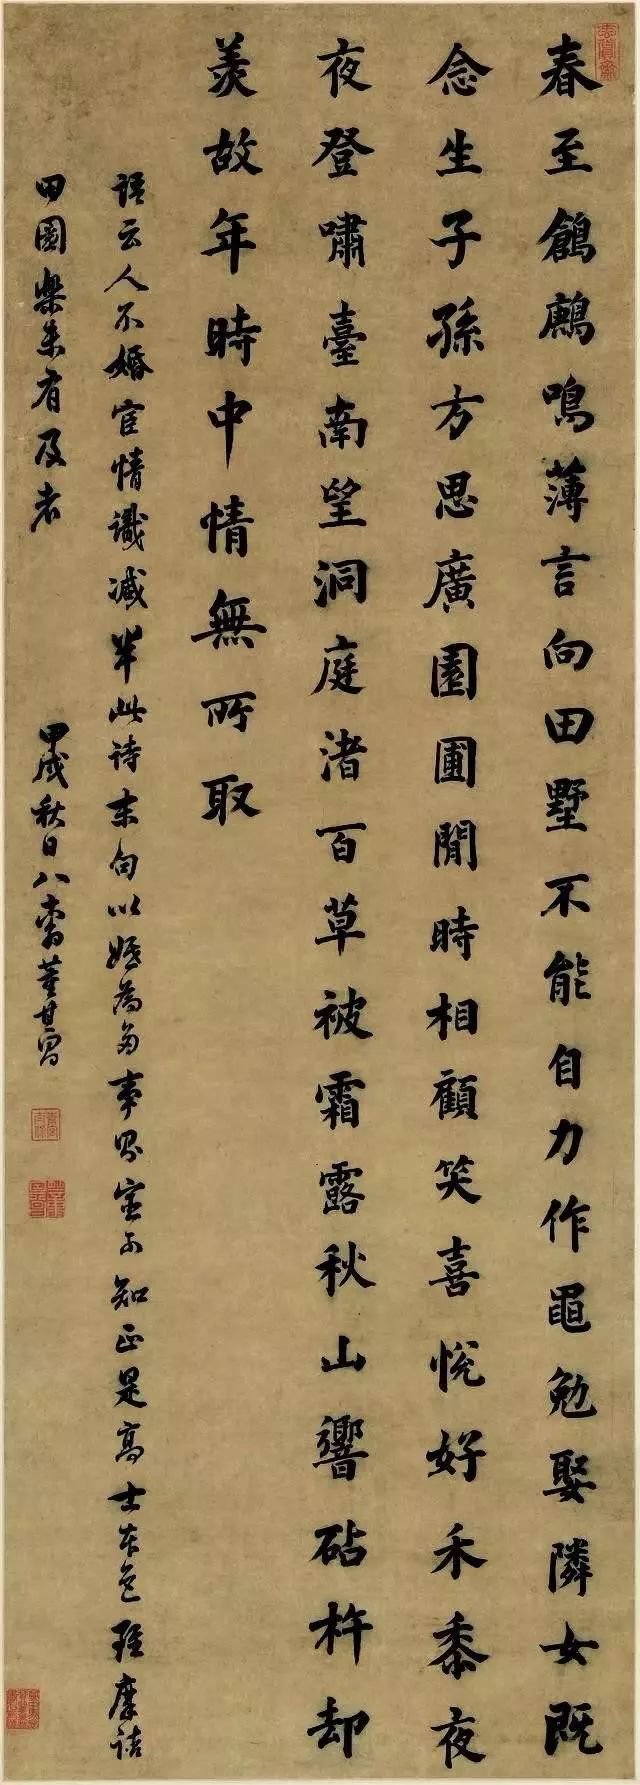 玄賞齋
春至鶬鶊鳴薄言向田墅不能自力作黽勉娶隣女既
念生子孫方思廣園圃閒時相顧笑喜悅好禾黍夜
夜登嘯臺南望洞庭渚百草被霜露秋山響砧杵却
羨故年時中情無所取
語云人不婚宦情識減半此詩末句以婚為多事知正是高士本色雖摩詰
田園樂未有及者
甲戌秋日八董其昌